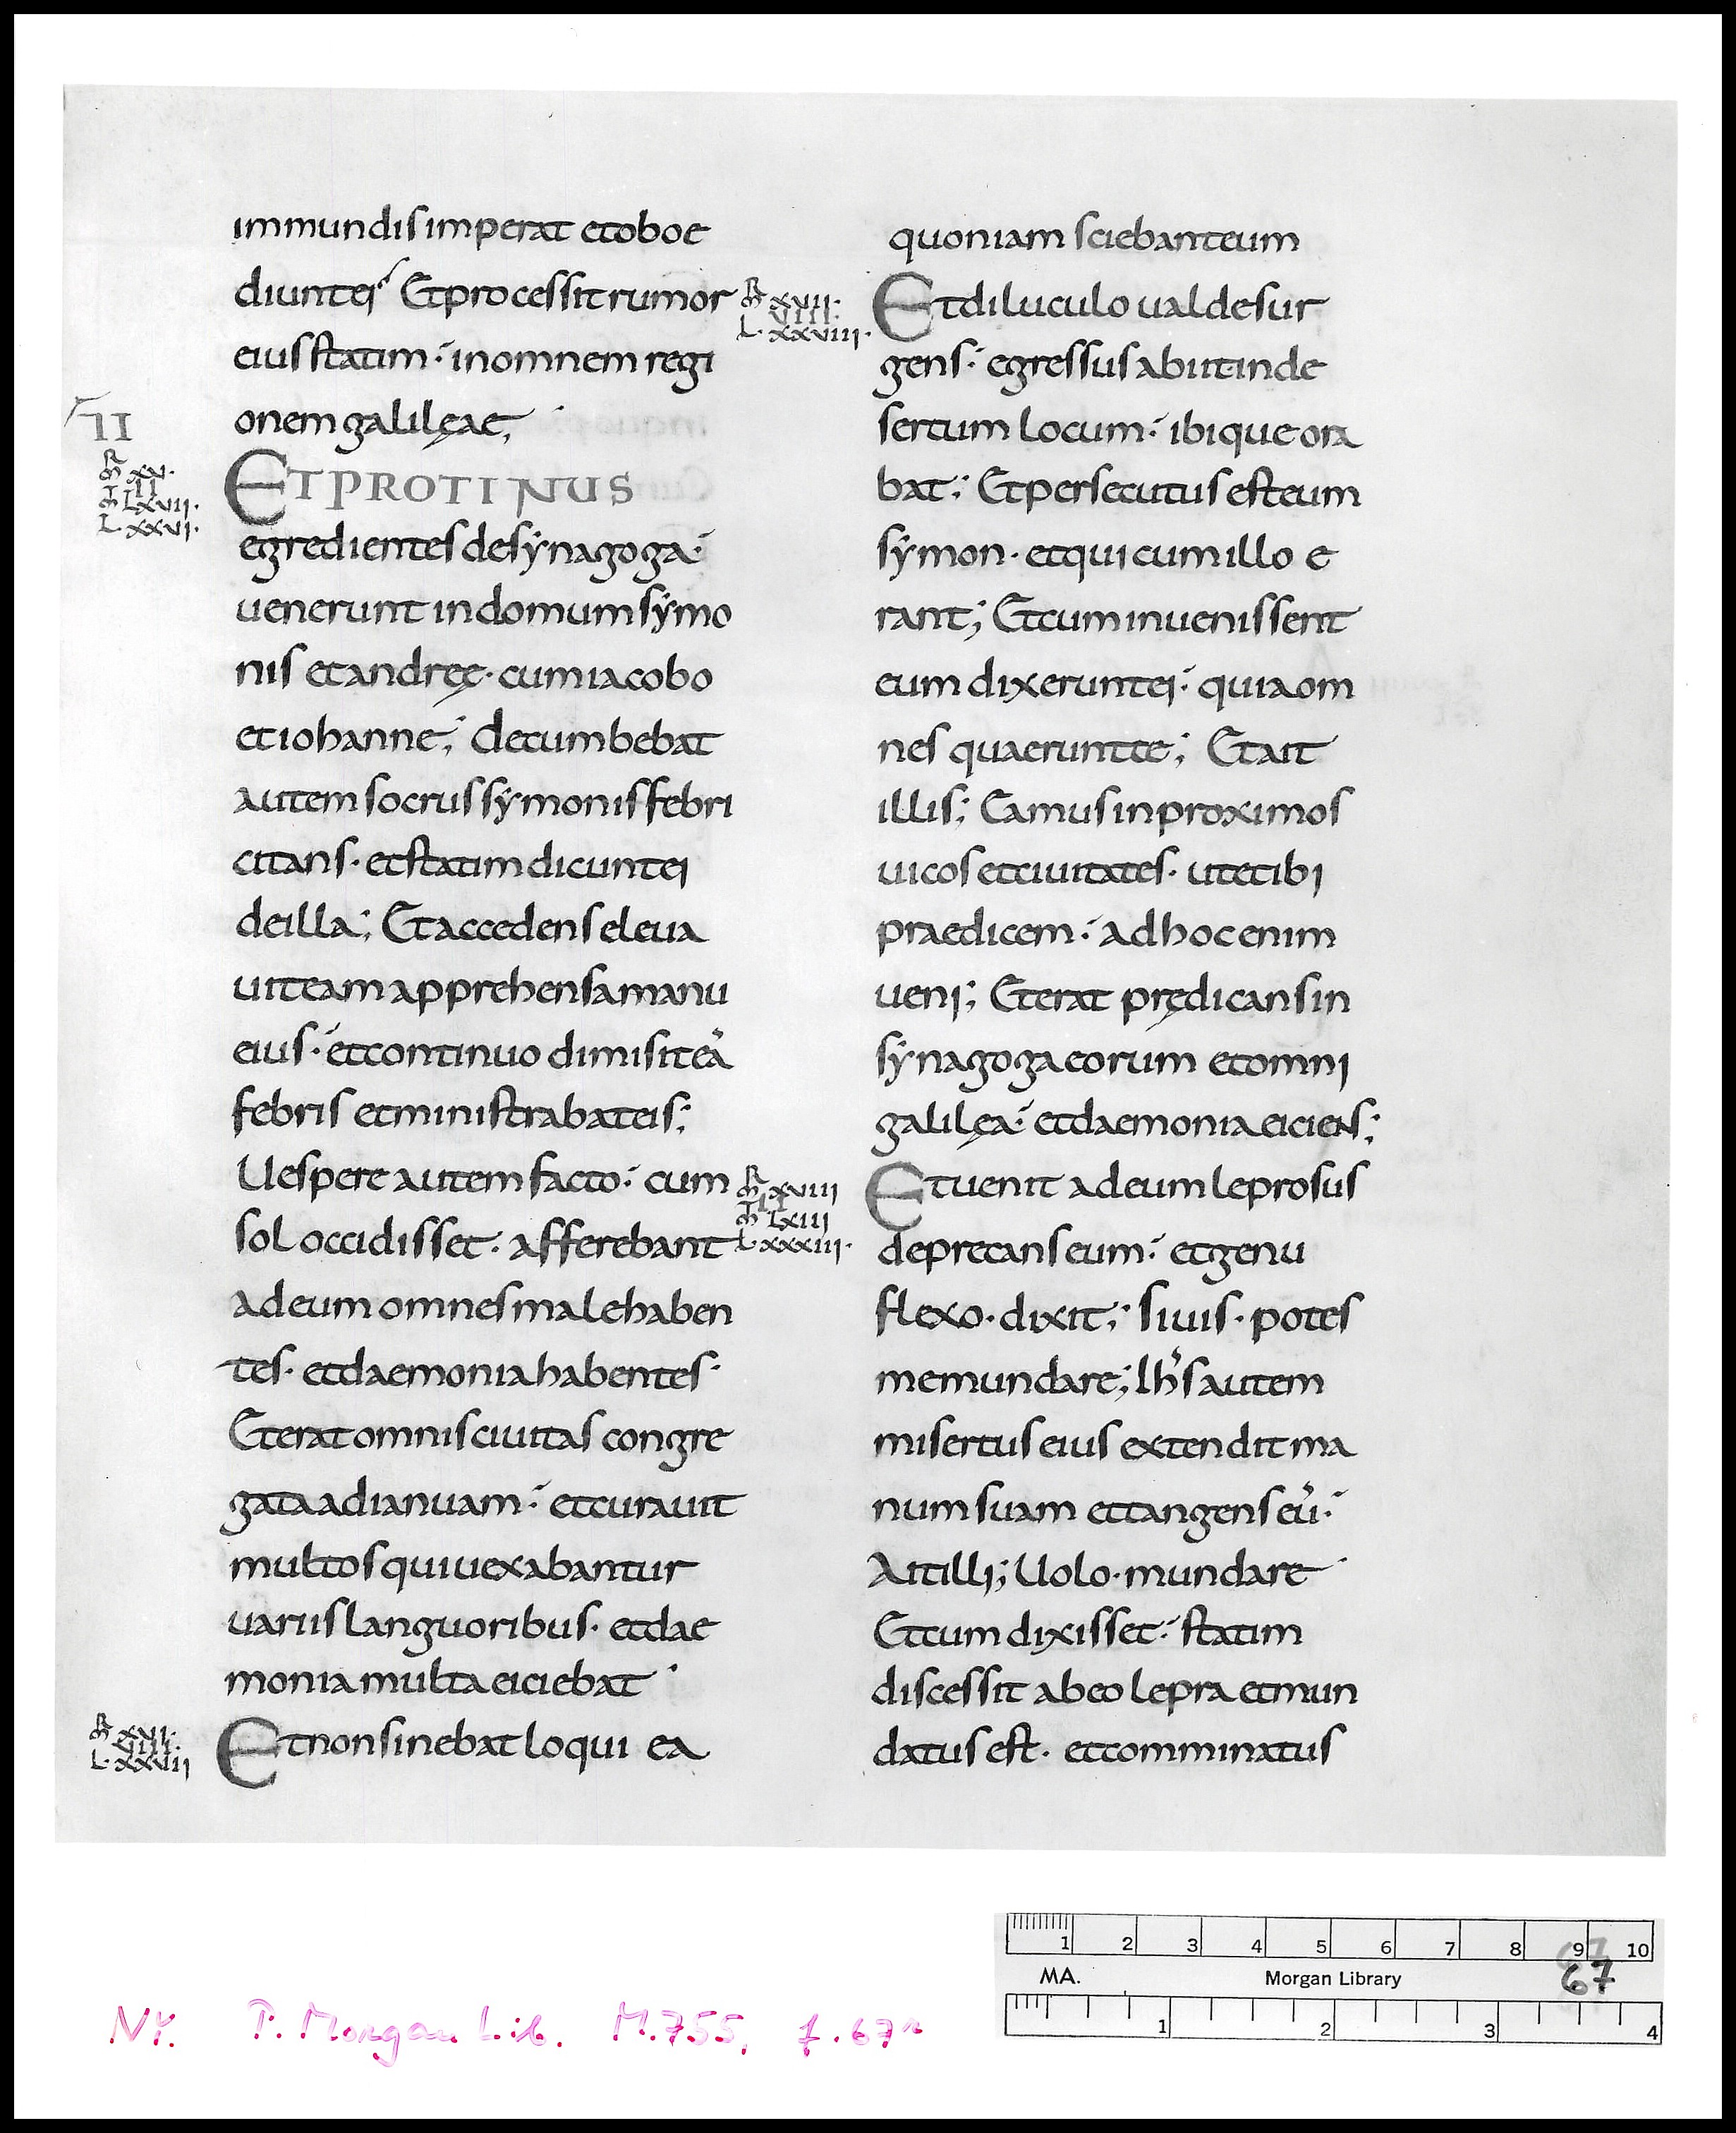 immundis imperat et oboe
diunt ei; Et processit rumor
eius statim · in omnem regi
onem galilęae;
II
R XV·
II
LXVII·
L· XXVI·
ET PROTINUS
egredientes de sẏnagoga·
uenerunt in domum sẏmo
nis et andreę· cum iacobo
et iohanne; decumbebat
autem socrus sẏmonis febri
citans· et statim dicunt ei
de illa; Et accedens eleua
uit eam apprehensa manu
eius· et continuo dimisit eā
febris et ministrabat eis;
Uespere autem facto· cum
sol occidisset· afferebant
ad eum omnes male haben
tes· et daemonia habentes·
Et erat omnis ciuitas congre
gata ad ianuam· et curauit
multos qui uexabantur
uariis languoribus· et dae
monia multa eiciebat·
XVI·
VIII·
L· XXVII
Et non sinebat loqui ea
quoniam sciebant eum
XVII·
VIII·
L· XXVIII·
Et diluculo ualde sur
gens· egressus abiit in de
sertum locum· ibique ora
bat; Et persecutus est eum
sẏmon· et qui cum illo e
rant; Et cum inuenissent
eum dixerunt ei· quia om
nes quaerunt te; Et ait
illis; Eamus in proximos
uicos et ciuitates· ut et ibi
praedicem· ad hoc enim
ueni; Et erat prędicans in
sẏnagoga eorum et omni
galilęa· et daemonia eiciens;
XVIII
II
LXIII
L· XXXIII·
Et uenit ad eum leprosus
deprecans eum· et genu
flexo· dixit; si uis· potes
me mundare; Ihs autem
misertus eius extendit ma
num suam et tangens eū·
Ait illi; Uolo· mundare
Et cum dixisset· statim
discessit ab eo lepra et mun
datus est· et comminatus
1 2 3 4 5 6 7 8 9 10
MA. Morgan Library 67
1 2 3 4
NY. P. Morgan Lib. M.755, f. 67r